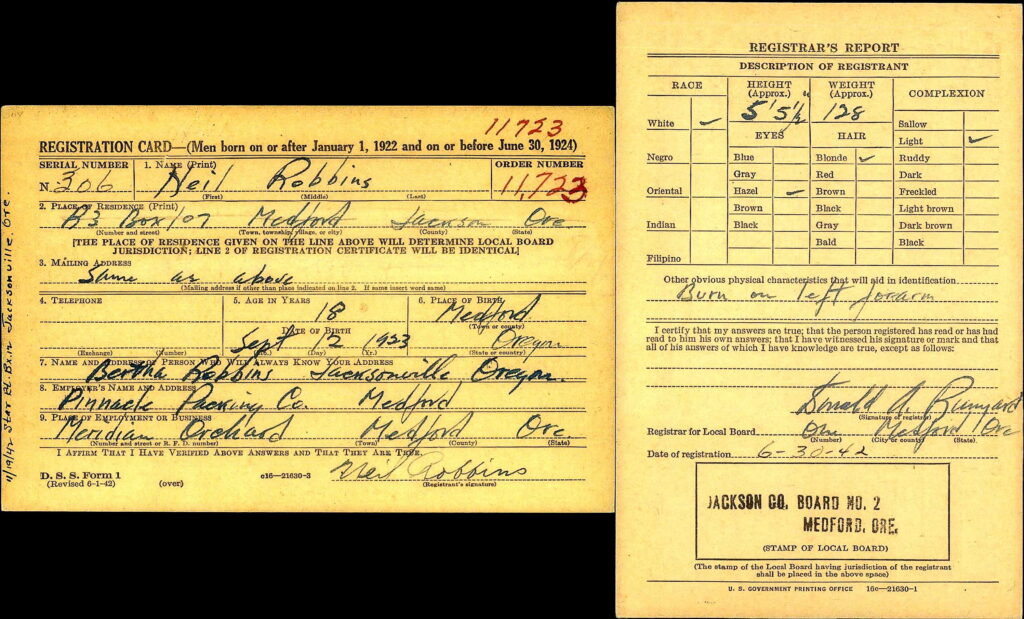 11723
REGISTRATION CARD—(Men born on or after January 1, 1922 and on or before June 30, 1924)
SERIAL NUMBER 1. NAME (Print) ORDER NUMBER
N 306 Neil Robbins 11,723
(First) (Middle) (Last)
2. PLACE OF RESIDENCE (Print)
R3 Box 107 Medford Jackson Ore
(Number and street) (Town, township, village, or city) (County) (State)
[THE PLACE OF RESIDENCE GIVEN ON THE LINE ABOVE WILL DETERMINE LOCAL BOARD
JURISDICTION; LINE 2 OF REGISTRATION CERTIFICATE WILL BE IDENTICAL]
3. MAILING ADDRESS
Same as above
(Mailing address if other than place indicated on line 2. If same insert word same)
4. TELEPHONE 5. AGE IN YEARS 6. PLACE OF BIRTH
18 Medford
(Town or county)
DATE OF BIRTH
Sept 12 1923 Oregon
(Exchange) (Number) (Mo.) (Day) (Yr.) (State or country)
7. NAME AND ADDRESS OF PERSON WHO WILL ALWAYS KNOW YOUR ADDRESS
Bertha Robbins Jacksonville Oregon.
8. EMPLOYER'S NAME AND ADDRESS
Pinnacle Packing Co. Medford
9. PLACE OF EMPLOYMENT OR BUSINESS
Meridian Orchard Medford Ore.
(Number and street or R. F. D. number) (Town) (County) (State)
I AFFIRM THAT I HAVE VERIFIED ABOVE ANSWERS AND THAT THEY ARE TRUE.
D. S. S. Form 1
(Revised 6-1-42) (over) c16—21630-3 Neil Robbins
(Registrant's signature)
11/19/42 Star Rt. Jacksonville, Ore.
REGISTRAR'S REPORT
DESCRIPTION OF REGISTRANT
RACE HEIGHT (Approx.) WEIGHT (Approx.) COMPLEXION
5' 5½ " 128
White ✓ Sallow
EYES HAIR Light ✓
Negro Blue Blonde ✓ Ruddy
Gray Red Dark
Oriental Hazel ✓ Brown Freckled
Brown Black Light brown
Indian Black Gray Dark brown
Bald Black
Filipino
Other obvious physical characteristics that will aid in identification
Burn on left forarm
I certify that my answers are true; that the person registered has read or has had
read to him his own answers; that I have witnessed his signature or mark and that
all of his answers of which I have knowledge are true, except as follows:
Donald A. Runyard
(Signature of registrar)
Registrar for Local Board Medford Ore
(Number) (City or county) (State)
Date of registration 6-30-42
JACKSON CO. BOARD NO. 2
MEDFORD, ORE.
(STAMP OF LOCAL BOARD)
(The stamp of the Local Board having jurisdiction of the registrant
shall be placed in the above space)
U. S. GOVERNMENT PRINTING OFFICE 16c—21630-1